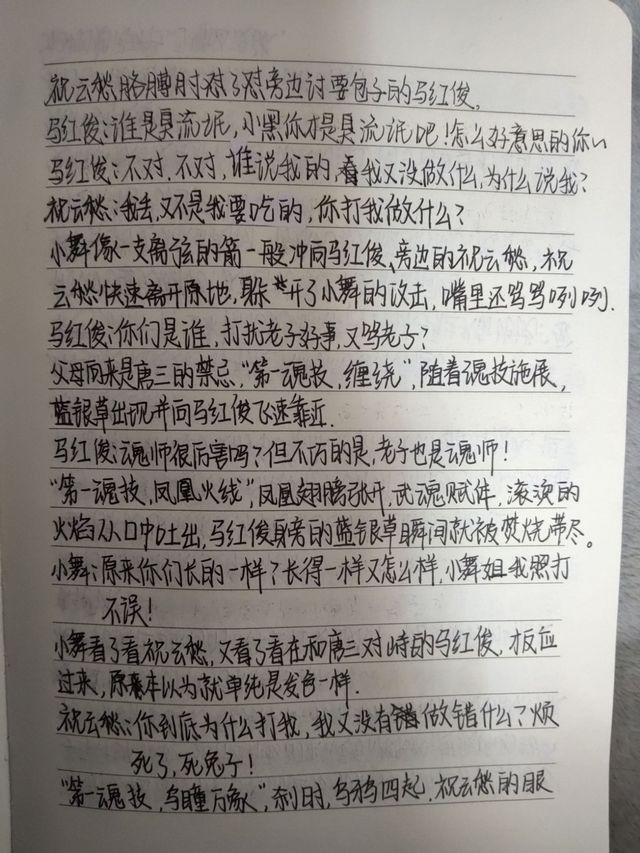 祝云愁胳膊肘怼了怼旁边讨要包子的马红俊。
马红俊:谁是臭流氓,小黑你才是臭流氓吧!怎么好意思的你~
马红俊:不对,不对,谁说我的,看我又没做什么,为什么说我?
祝云愁:我去,又不是我要吃的,你打我做什么?
小舞像一支离弦的箭一般冲向马红俊、旁边的祝云愁,祝
云愁快速离开原地,躲开了小舞的攻击,嘴里还骂骂咧咧.
马红俊:你们是谁,打扰老子好事,又骂老子?
父母向来是唐三的禁忌,“第一魂技,缠绕”,随着魂技施展,
蓝银草出现并向马红俊飞速靠近.
马红俊:魂师很厉害吗?但不巧的是,老子也是魂师!
“第一魂技,凤凰火线”,凤凰翅膀张开,武魂赋体,滚滚的
火焰从口中吐出,马红俊身旁的蓝银草瞬间就被焚烧带尽。
小舞:原来你们长的一样?长得一样又怎么样,小舞姐我照打
不误!
小舞看了看祝云愁,又看了看在和唐三对峙的马红俊,反应
过来,原来本以为就单纯是发色一样.
祝云愁:你到底为什么打我,我又没有做错什么?烦
死了,死兔子!
“第一魂技,乌瞳万象”,刹时,乌鸦四起,祝云愁的眼